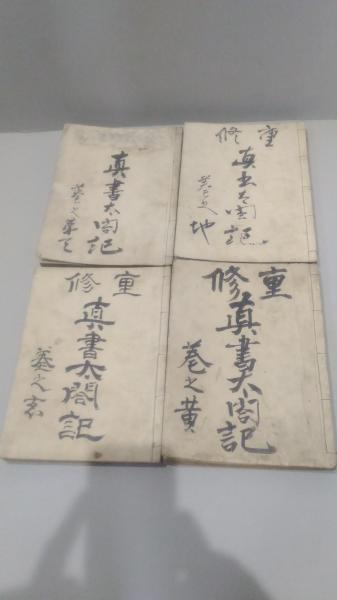 真書太閤記
巻之天
重修
真書太閤記
巻之地
重修
真書太閤記
巻之玄
重修
真書太閤記
巻之黄